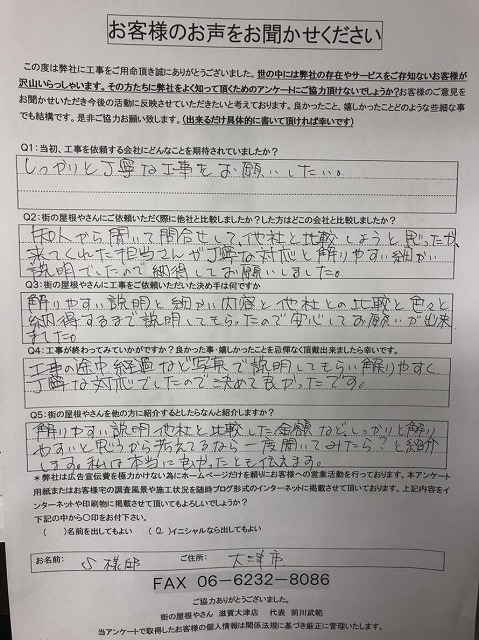 お客様のお声をお聞かせください
この度は弊社に工事をご用命頂き誠にありがとうございました。世の中には弊社の存在やサービスをご存知ないお客様が
沢山いらっしゃいます。その方たちに弊社をよく知って頂くためのアンケートにご協力頂けないでしょうか?お客様のご意見を
お聞かせいただき今後の活動に反映させていただきたいと考えております。良かったこと、嬉しかったことどのような些細な事
でも結構です。是非ご協力お願い致します。(出来るだけ具体的に書いて頂ければ幸いです)
Q1:当初、工事を依頼する会社にどんなことを期待されていましたか?
しっかりと丁寧な工事をお願いしたい。
Q2:街の屋根やさんにご依頼いただく際に他社と比較しましたか?した方はどこの会社と比較しましたか?
知人から聞いて問合せして、他社と比較しようと思ったが、
来てくれた担当さんが丁寧な対応と解りやすい細かい
説明でしたので納得してお願いしました。
Q3:街の屋根やさんに工事をご依頼いただいた決め手は何ですか
解りやすい説明と細かい内容と他社との比較と色々と
納得するまで説明してもらったので安心してお願いが出来
ました。
Q4:工事が終わってみていかがですか?良かった事・嬉しかったことを忌憚なく頂戴出来ましたら幸いです。
工事の途中経過など写真で説明してもらい解りやすく
丁寧な対応でしたので決めて良かったです。
Q5:街の屋根やさんを他の方に紹介するとしたらなんと紹介しますか?
解りやすい説明、他社と比較した金額など、しっかりと解り
やすいと思うから考えてるなら一度聞いてみたら?と紹介
します。私は本当に良かったとも伝えます。
*弊社は広告宣伝費を極力かけない為にホームページだけを頼りにお客様への営業活動を行っております。本アンケート
用紙またはお客様宅の調査風景や施工状況を随時ブログ形式のインターネットに掲載させて頂いております。上記内容をイ
ンターネットや印刷物に掲載させて頂いてもよろしいでしょうか?
下記の中から○印をお付下さい。
( )名前を出してもよい (○)イニシャルなら出してもよい
お名前: S様邸 ご住所: 大津市
FAX 06-6232-8086
ご協力ありがとうございました。
街の屋根やさん 滋賀大津店 代表 前川武範
当アンケートで取得したお客様の個人情報は関係法規に基づき厳正に管理いたします。